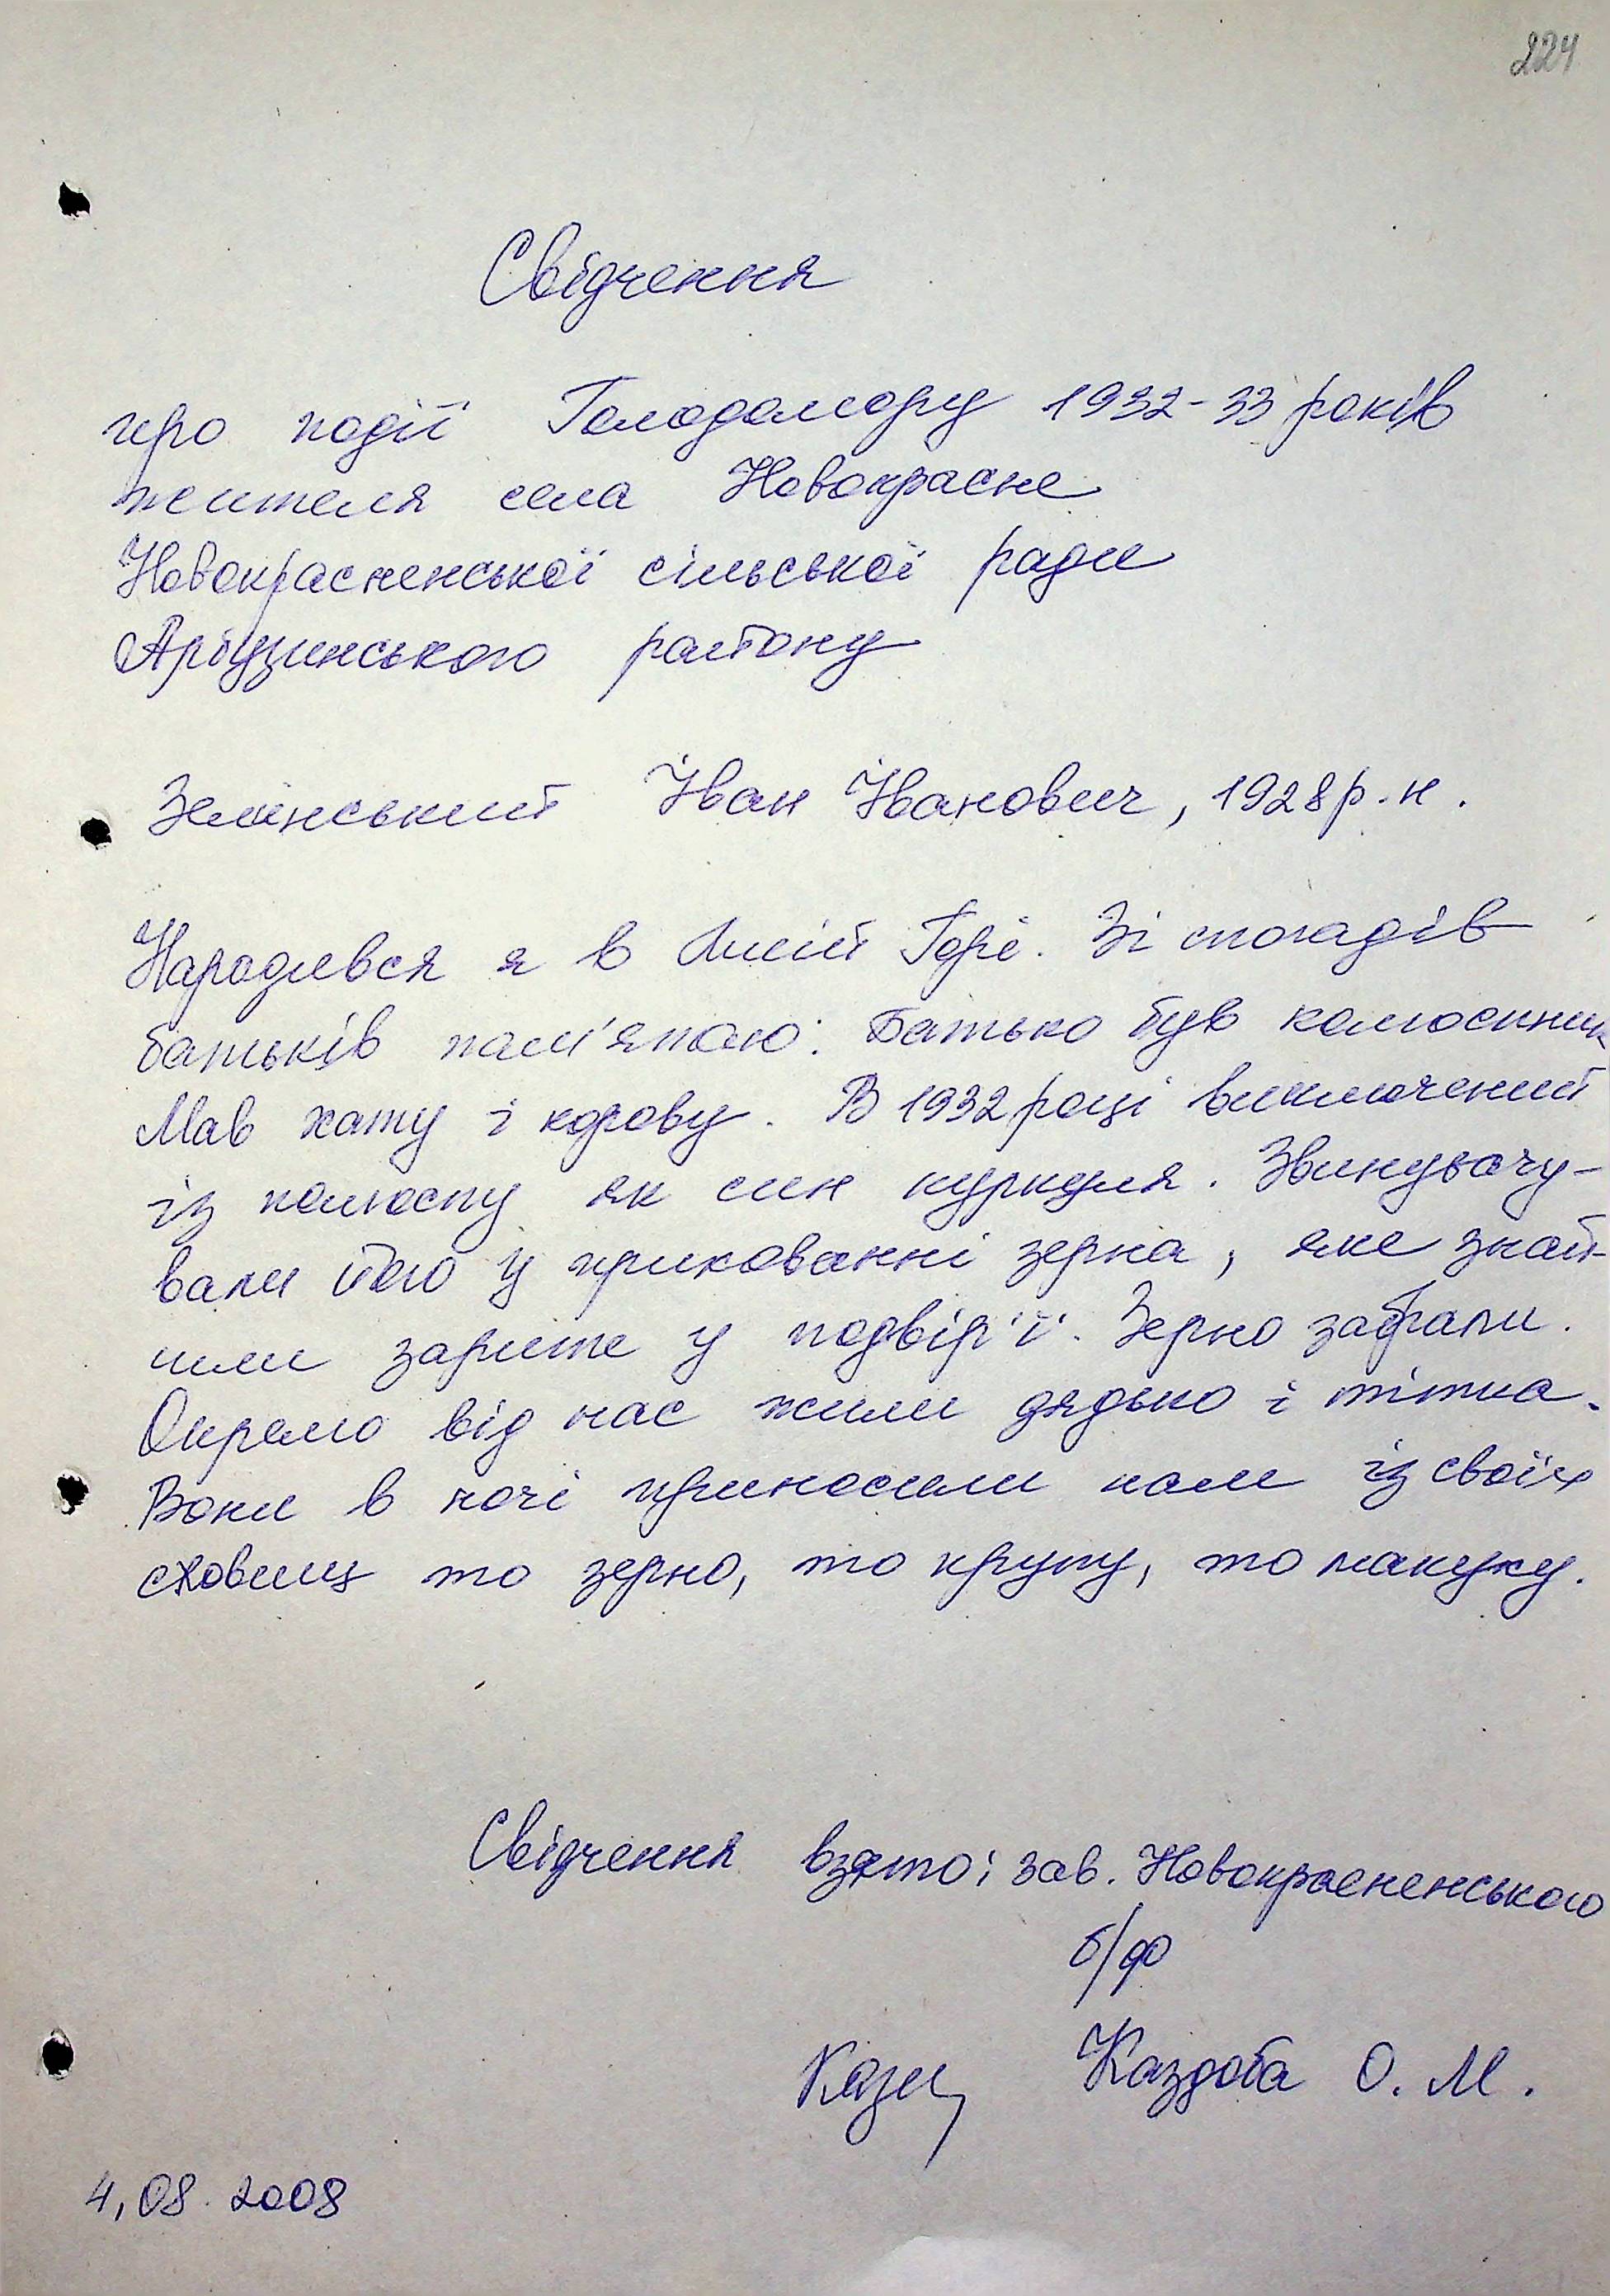 224
Свідчення
про події Голодомору 1932-33 років
жителя села Новокрасне
Новокрасненської сільської ради
Арбузинського району
Зелінський Іван Іванович, 1928 р. н.
Народився я в Лисій Горі. Зі спогадів
батьків пам'ятаю: Батько був колгоспник
Мав хату і корову. В 1932 році виключений
із колгоспу як син куркуля. Звинувачу-
вали його у прихованні зерна, яке знай-
шли зарите у подвір'ї. Зерно забрали.
Окремо від нас жили дядько і тітка.
Вони в ночі приносили нам із своїх
сховищ то зерно, то крупу, то макуху.
Свідчення взято: зав. Новокрасненського
б/ф
Каздоба О. М.
4.08.2008